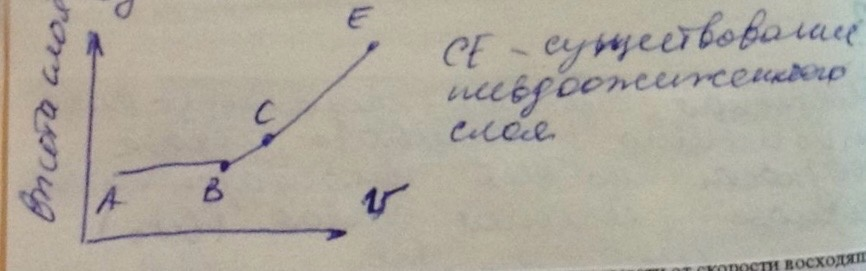 Высота слоя
E
C
A
B
v
CE – существование
псевдоожиженного
слоя
от скорости восходящ